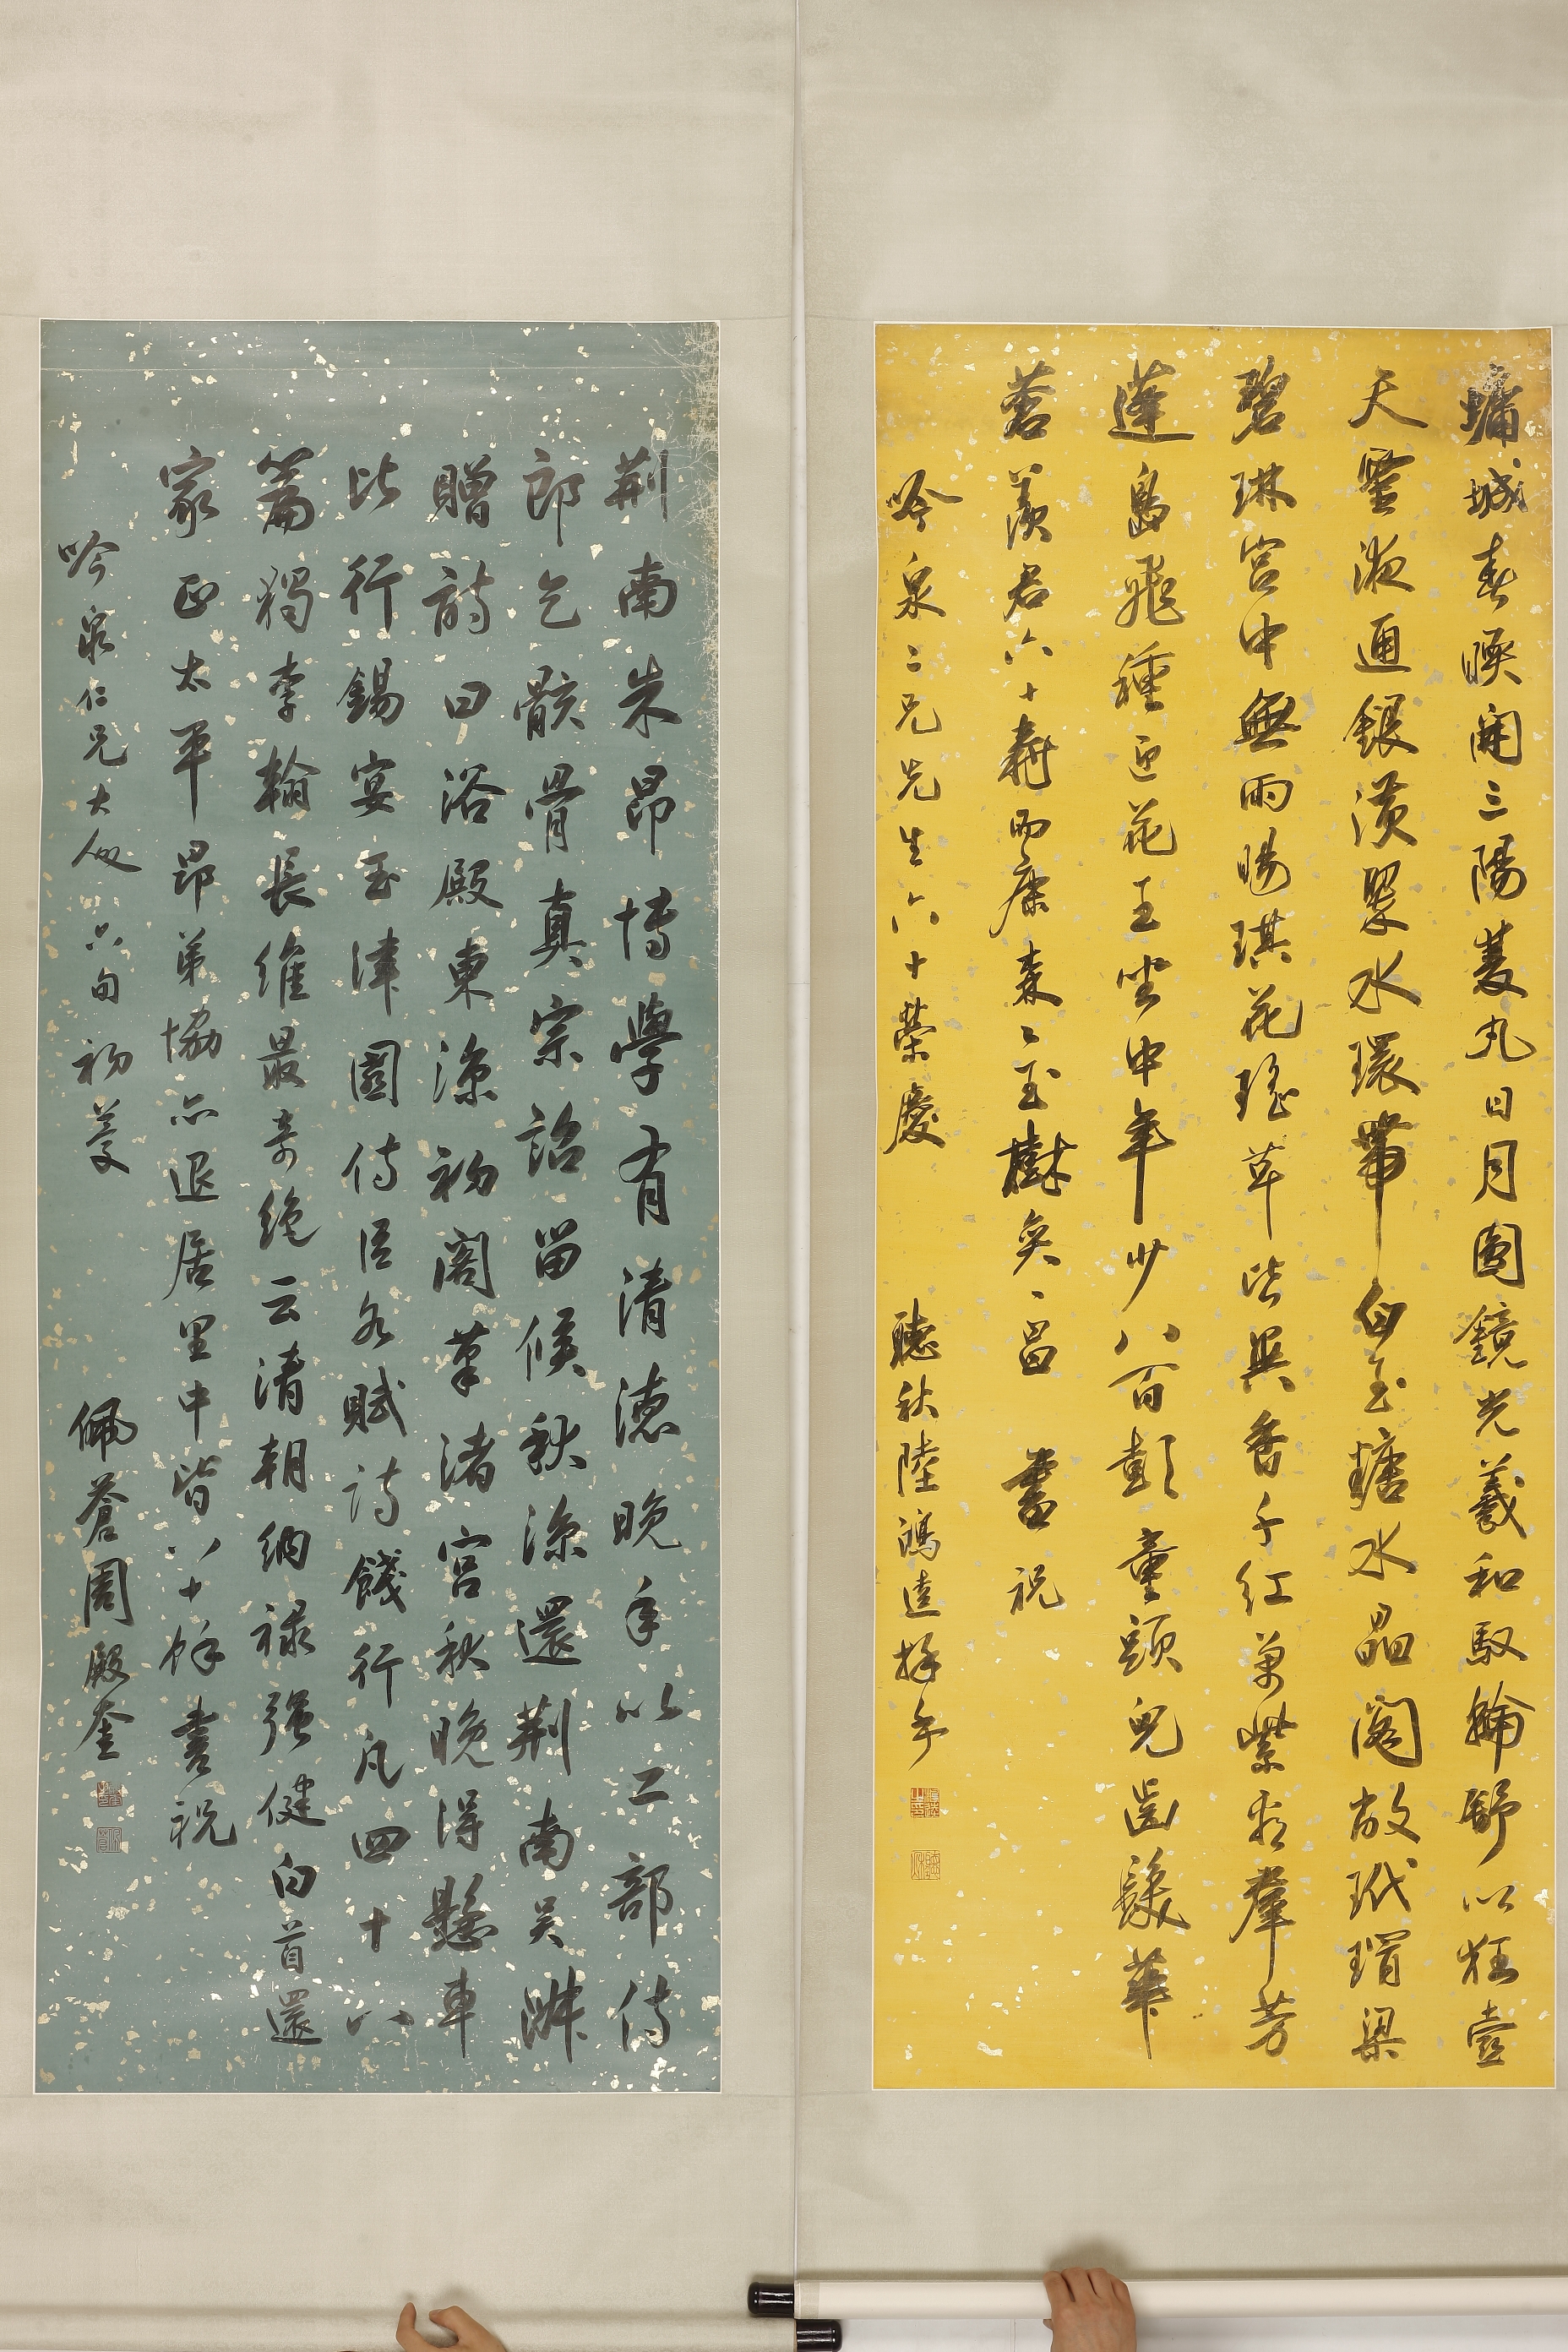 墉城春暖開三陽蓂丸日月圓鏡光羲和馭輪舒以枉壺
天靈液通銀潢翠水環帶白玉塘水晶閣敞玳瑁梁
碧琳宮中無雨暘琪花瑤草皆異香千紅萬紫冠羣芳
蓬島飛種迎花王坐中年少八百彭童頭兒齒鬢華
蒼羨君六十壽而康森々玉樹奐々昌 書祝
吟泉二兄先生六十榮慶 聽秋陸鴻逵拜手
荆南朱昂博學有清德晚年以工部侍
郎乞骸骨真宗詔留候秋涼還荆南吳淑
贈詩曰浴殿東涼初閣筆渚宮秋晚得懸車
比行錫宴玉津園侍臣各賦詩餞行凡四十八
篇獨李翰長維最奇絶云清朝納祿強健白首還
家正太平昂弟協亦退居里中皆八十餘書祝
吟泉仁兄大人六旬初慶 佩蒼周殿奎